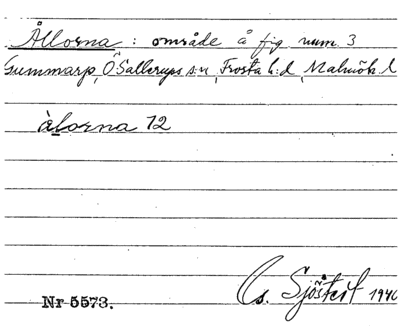 Ållorna : område å fig num 3
Gummarp, Ö Sallerups s:n, Frosta h:d, Malmöh. l
àlorna 12
Nr 5573.
Sjöstedt 1946